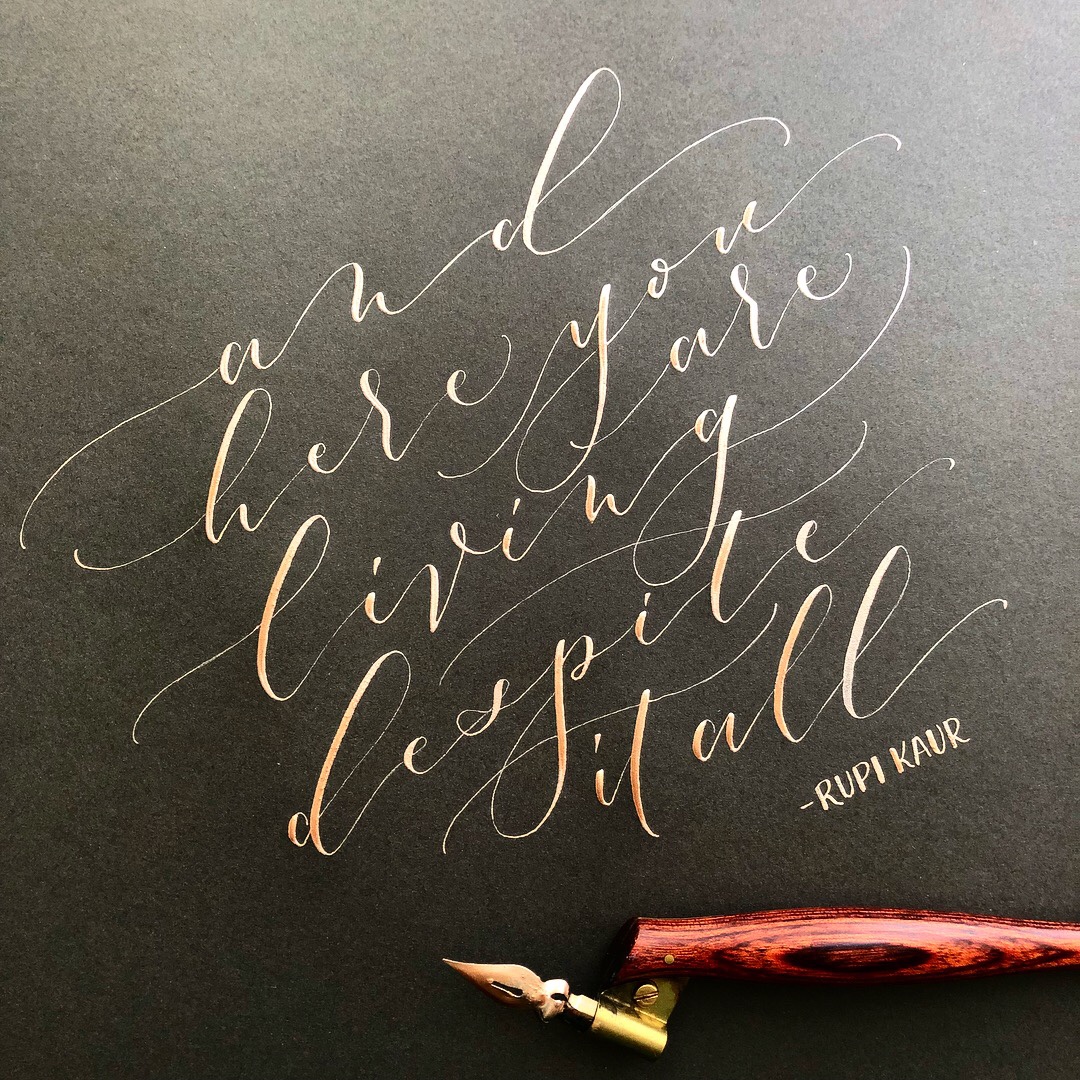 and
here you are
living
despite
it all
-RUPI KAUR